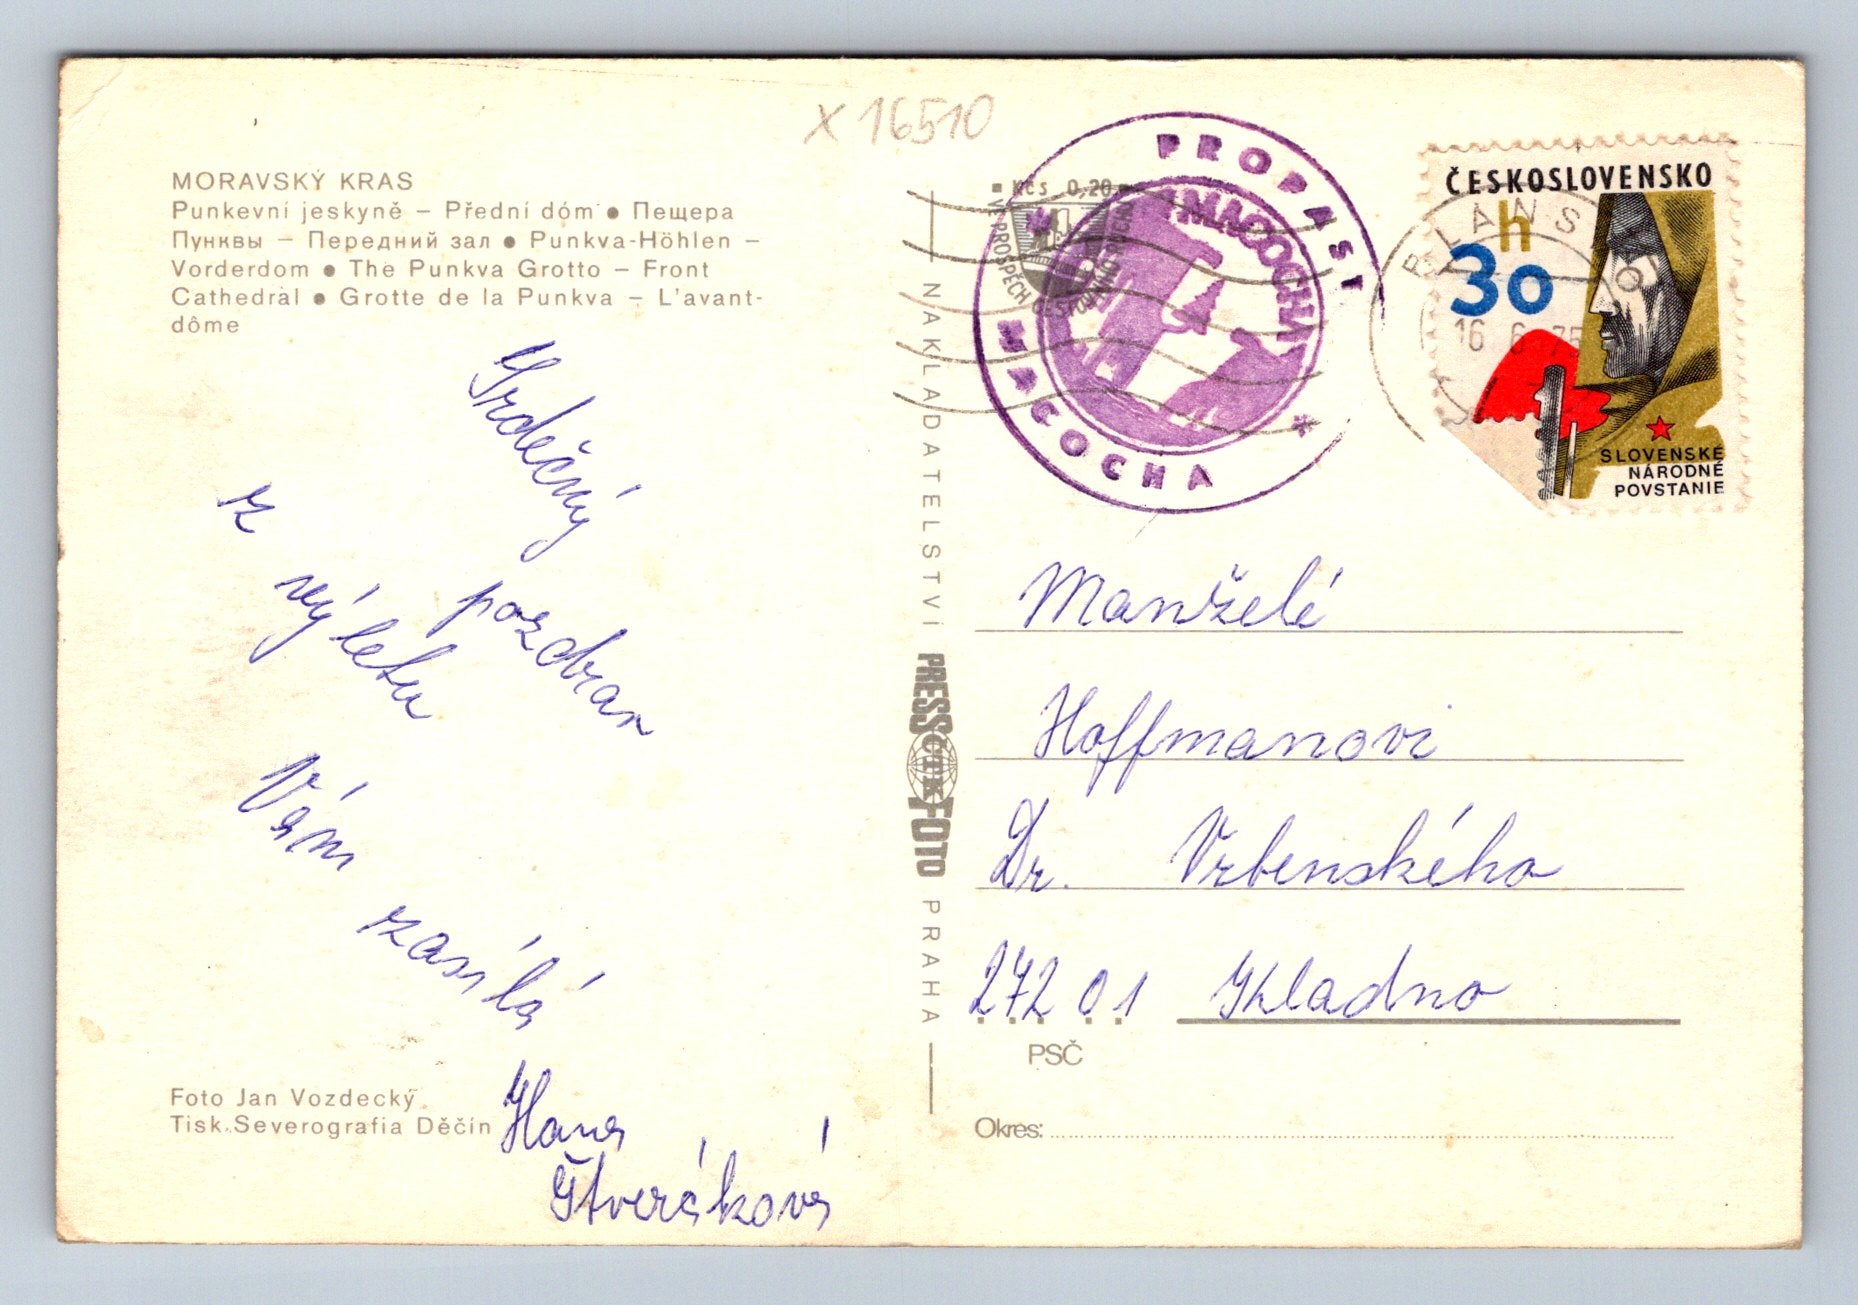 X 16510
MORAVSKÝ KRAS
Punkevní jeskyně – Přední dóm ● Пещера
Пунквы – Передний зал ● Punkva-Höhlen –
Vorderdom ● The Punkva Grotto – Front
Cathedral ● Grotte de la Punkva – L'avant-
dôme
Srdečný
pozdrav
z
výletu
Vám
zasílá
Hana
Štveráková
Foto Jan Vozdecký
Tisk Severografia Děčín
NAKLADATELSTVÍ PRESSFOTO PRAHA
ČTK
Kčs 0,20
VE PROSPĚCH CESTOVNÍHO RUCHU
PROPAST
MACOCHA
MACOCHA
BLANSKO
16 6 75
ČESKOSLOVENSKO
h
30
SLOVENSKÉ
NÁRODNÉ
POVSTANIE
Manželé
Hoffmanovi
Dr. Vrbenského
272 01 Kladno
PSČ
Okres: